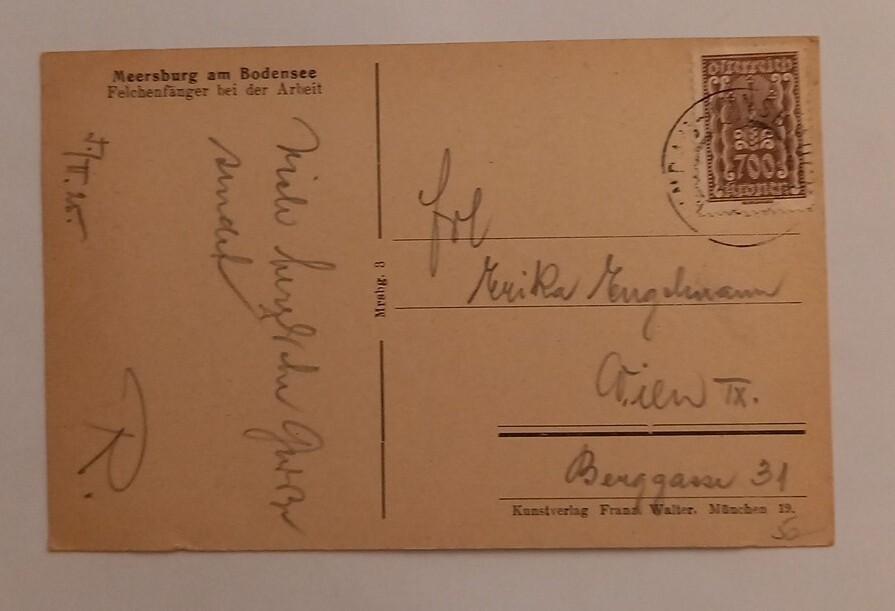 Meersburg am Bodensee
Felchenfänger bei der Arbeit
Viele herzliche Grüße
sendet
R.
Mrsbg. 3
Österreich
700
Kronen
Frl
Erika Engelmann
Wien IX.
Berggasse 31
Kunstverlag Franz Walter, München 19.